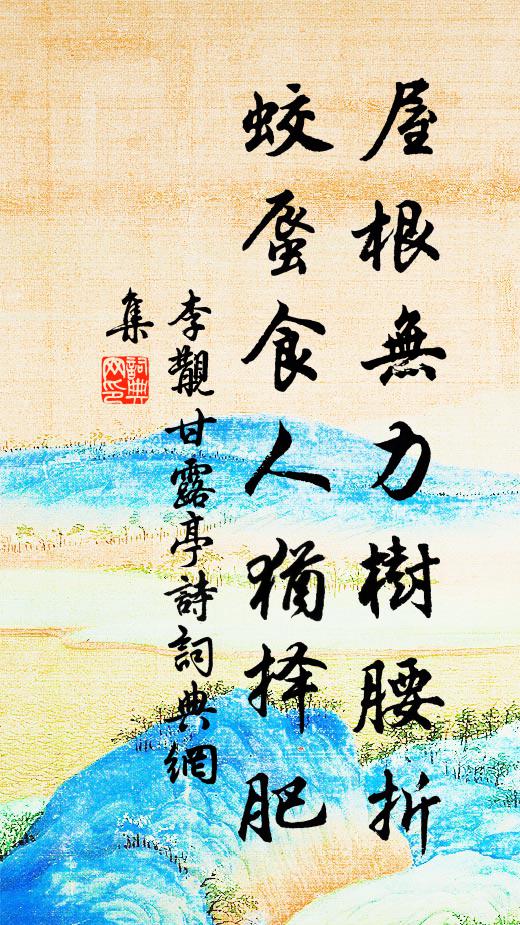 屋根無力樹腰折
蛟蜃食人猶择肥
李觀甘露亭詩詞典網
集
詞典
網印